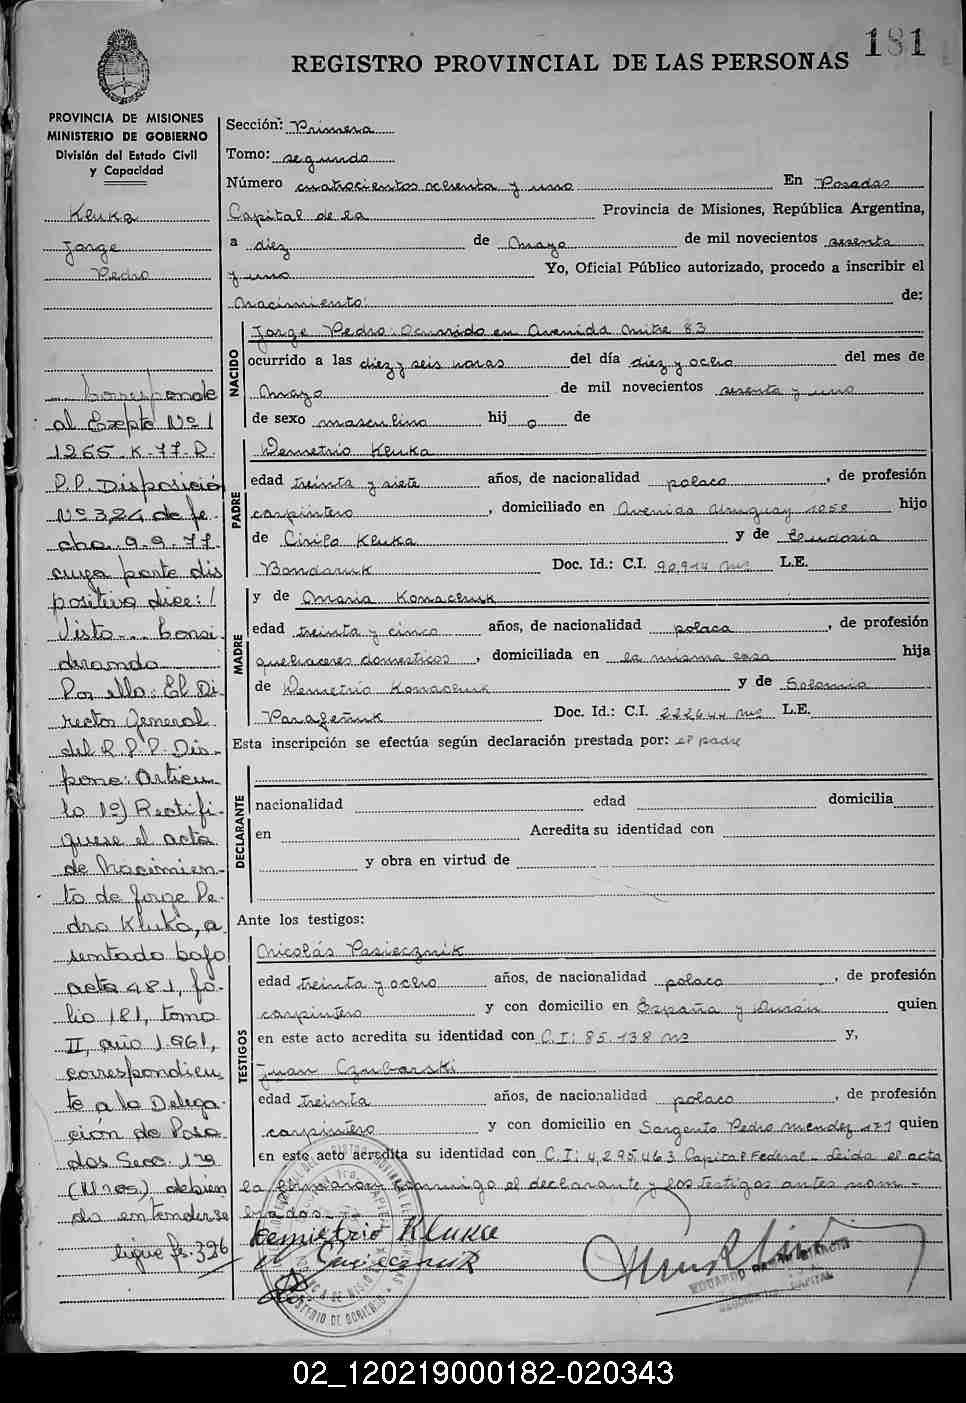 181
REGISTRO PROVINCIAL DE LAS PERSONAS
PROVINCIA DE MISIONES
MINISTERIO DE GOBIERNO
División del Estado Civil
y Capacidad
Kluka
Jorge
Pedro
Corresponde
al Expte Nº 1
1265-K-77-R.
P.P. Disposició
Nº 324 de fe
cha 9-9-77
cuya parte dis
positiva dice: /
Visto... Consi
derando
Por ello: El Di
rector General
del R.P.P. Dis-
pone: Articu
lo 1º) Rectifi-
quese el acta
de Nacimien-
to de Jorge Pe-
dro Kluka, a
sentado bajo
acta 481, fo-
lio 181, tomo
II, año 1961,
correspondien
te a la Delega-
ción de Posa
das Secc. 1ra
(Mnes.) debien
do entenderse
sigue fs. 326
Sección: Primera
Tomo: segundo
Número cuatrocientos ochenta y uno En Posadas
Capital de la Provincia de Misiones, República Argentina,
a diez de Mayo de mil novecientos sesenta
y uno Yo, Oficial Público autorizado, procedo a inscribir el
Nacimiento: de:
NACIDO
Jorge Pedro. Ocurrido en Avenida Mitre 83
ocurrido a las diez y seis horas del día diez y ocho del mes de
Mayo de mil novecientos sesenta y uno
de sexo masculino hij o de
PADRE
Demetrio Kluka
edad treinta y siete años, de nacionalidad polaco, de profesión
carpintero, domiciliado en Avenida Uruguay 1058 hijo
de Cirilo Kluka y de Eudosia
Bondaruk Doc. Id.: C.I. 90.914 Mns L.E.
MADRE
y de Maria Konachuk
edad treinta y cinco años, de nacionalidad polaca, de profesión
quehaceres domesticos, domiciliada en la misma casa hija
de Demetrio Konachuk y de Solomia
Parafeñuk Doc. Id.: C.I. 222644 Mns L.E.
Esta inscripción se efectúa según declaración prestada por: el padre
DECLARANTE
nacionalidad edad domicilia
en Acredita su identidad con
y obra en virtud de
Ante los testigos:
TESTIGOS
Nicolás Pasiecznik
edad treinta y ocho años, de nacionalidad polaco, de profesión
carpintero y con domicilio en España y quien
en este acto acredita su identidad con C.I: 85.138 Mns y,
Juan Czubarski
edad treinta años, de nacionalidad polaco, de profesión
carpintero y con domicilio en Sargento Pedro Mendez 171 quien
en este acto acredita su identidad con C.I: 4,295,463 Capital Federal. Leida el acta
la firmaron conmigo el declarante y los testigos antes nom-
brados.
Demietrio Kluka
02_120219000182-020343